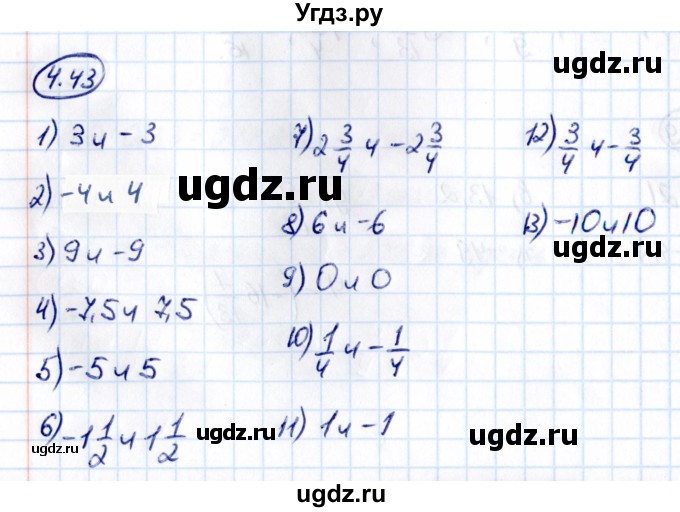 Угдз.ру
4.43
ugdz.ru
ugdz.ru
1) 3 и -3
2) -4 и 4
ugdz.ru
3) 9 и -9
4) -7,5 и 7,5
5) -5 и 5
6) -1 1/2 и 1 1/2
7) 2 3/4 и -2 3/4
8) 6 и -6
9) 0 и 0
10) 1/4 и -1/4
11) 1 и -1
12) 3/4 и -3/4
13) -10 и 10
ugdz.ru
ugdz.ru
ugdz.ru
ugdz.ru
ugdz.ru
ugdz.ru